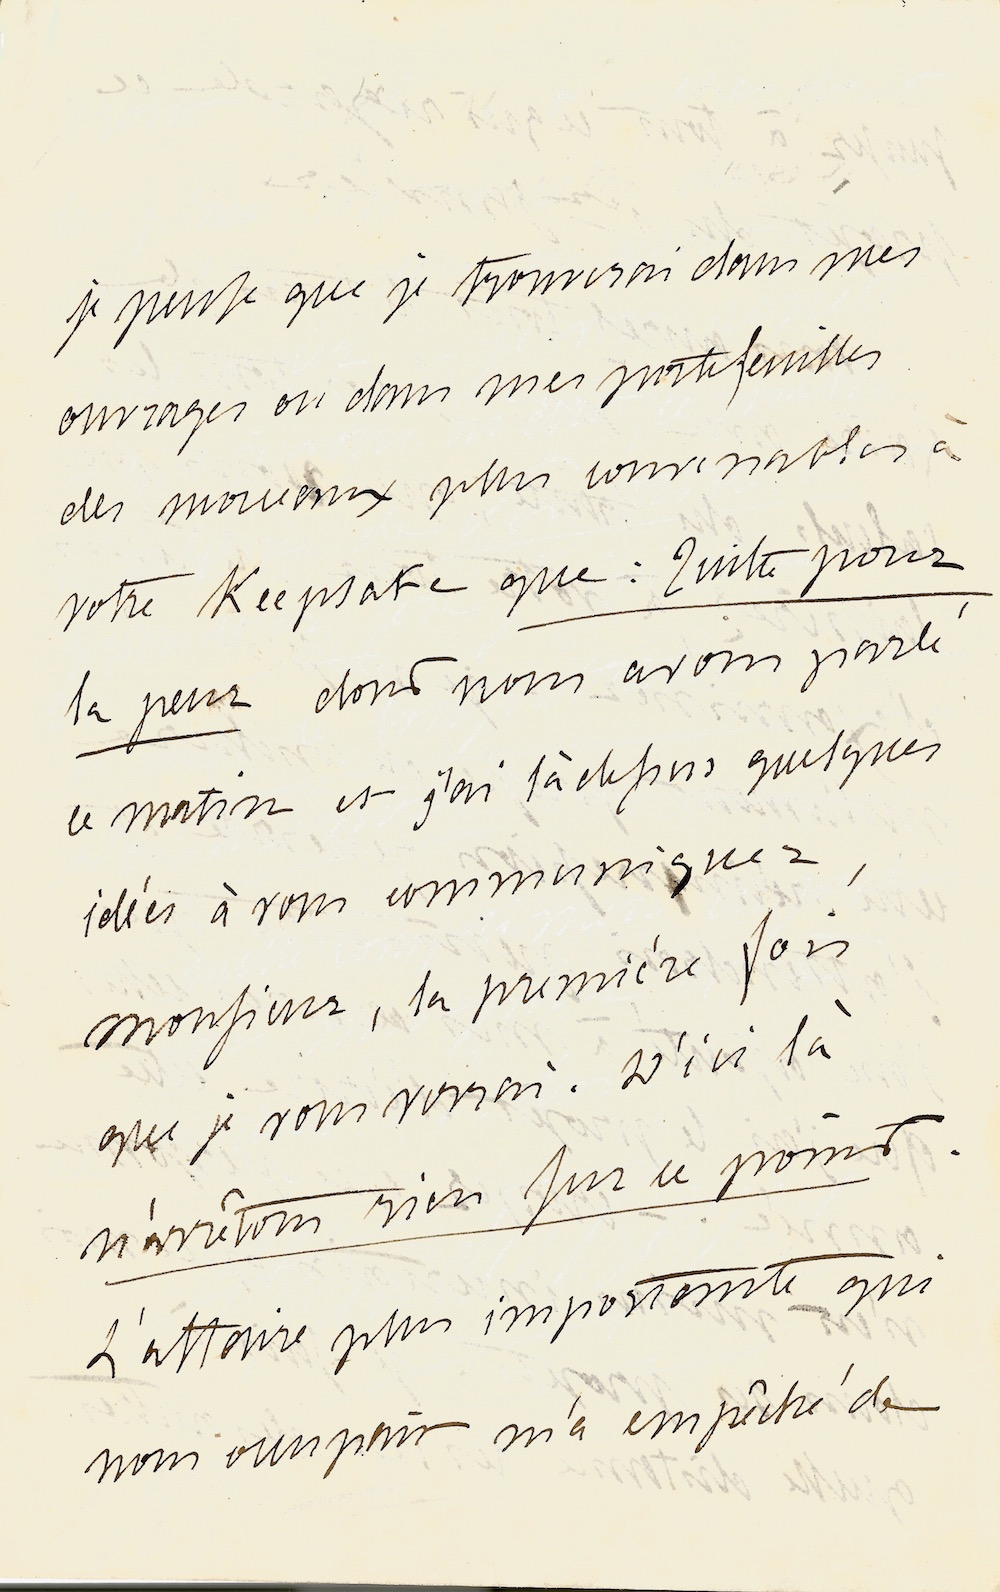 je pense que je trouverai dans mes
ouvrages ou dans mes portefeuilles
des morceaux plus convenables à
votre Keepsake que : Quitte pour
la peur dont nous avons parlé
ce matin et j'ai làdessus quelques
idées à vous communiquer,
monsieur, la première fois
que je vous verrai. D'ici là
n'arrêtons rien sur ce point.
L'affaire plus importante qui
nous occupait m'a empêché de